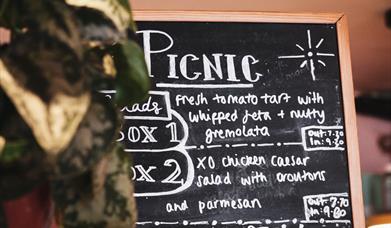 PICNIC
Salads
BOX 1
fresh tomato tart with
whipped feta + nutty
gremolata
Out: 7.30
In: 9.30
BOX 2
XO chicken caesar
salad with croutons
and parmesan
Out: 7.30
In: 9.30